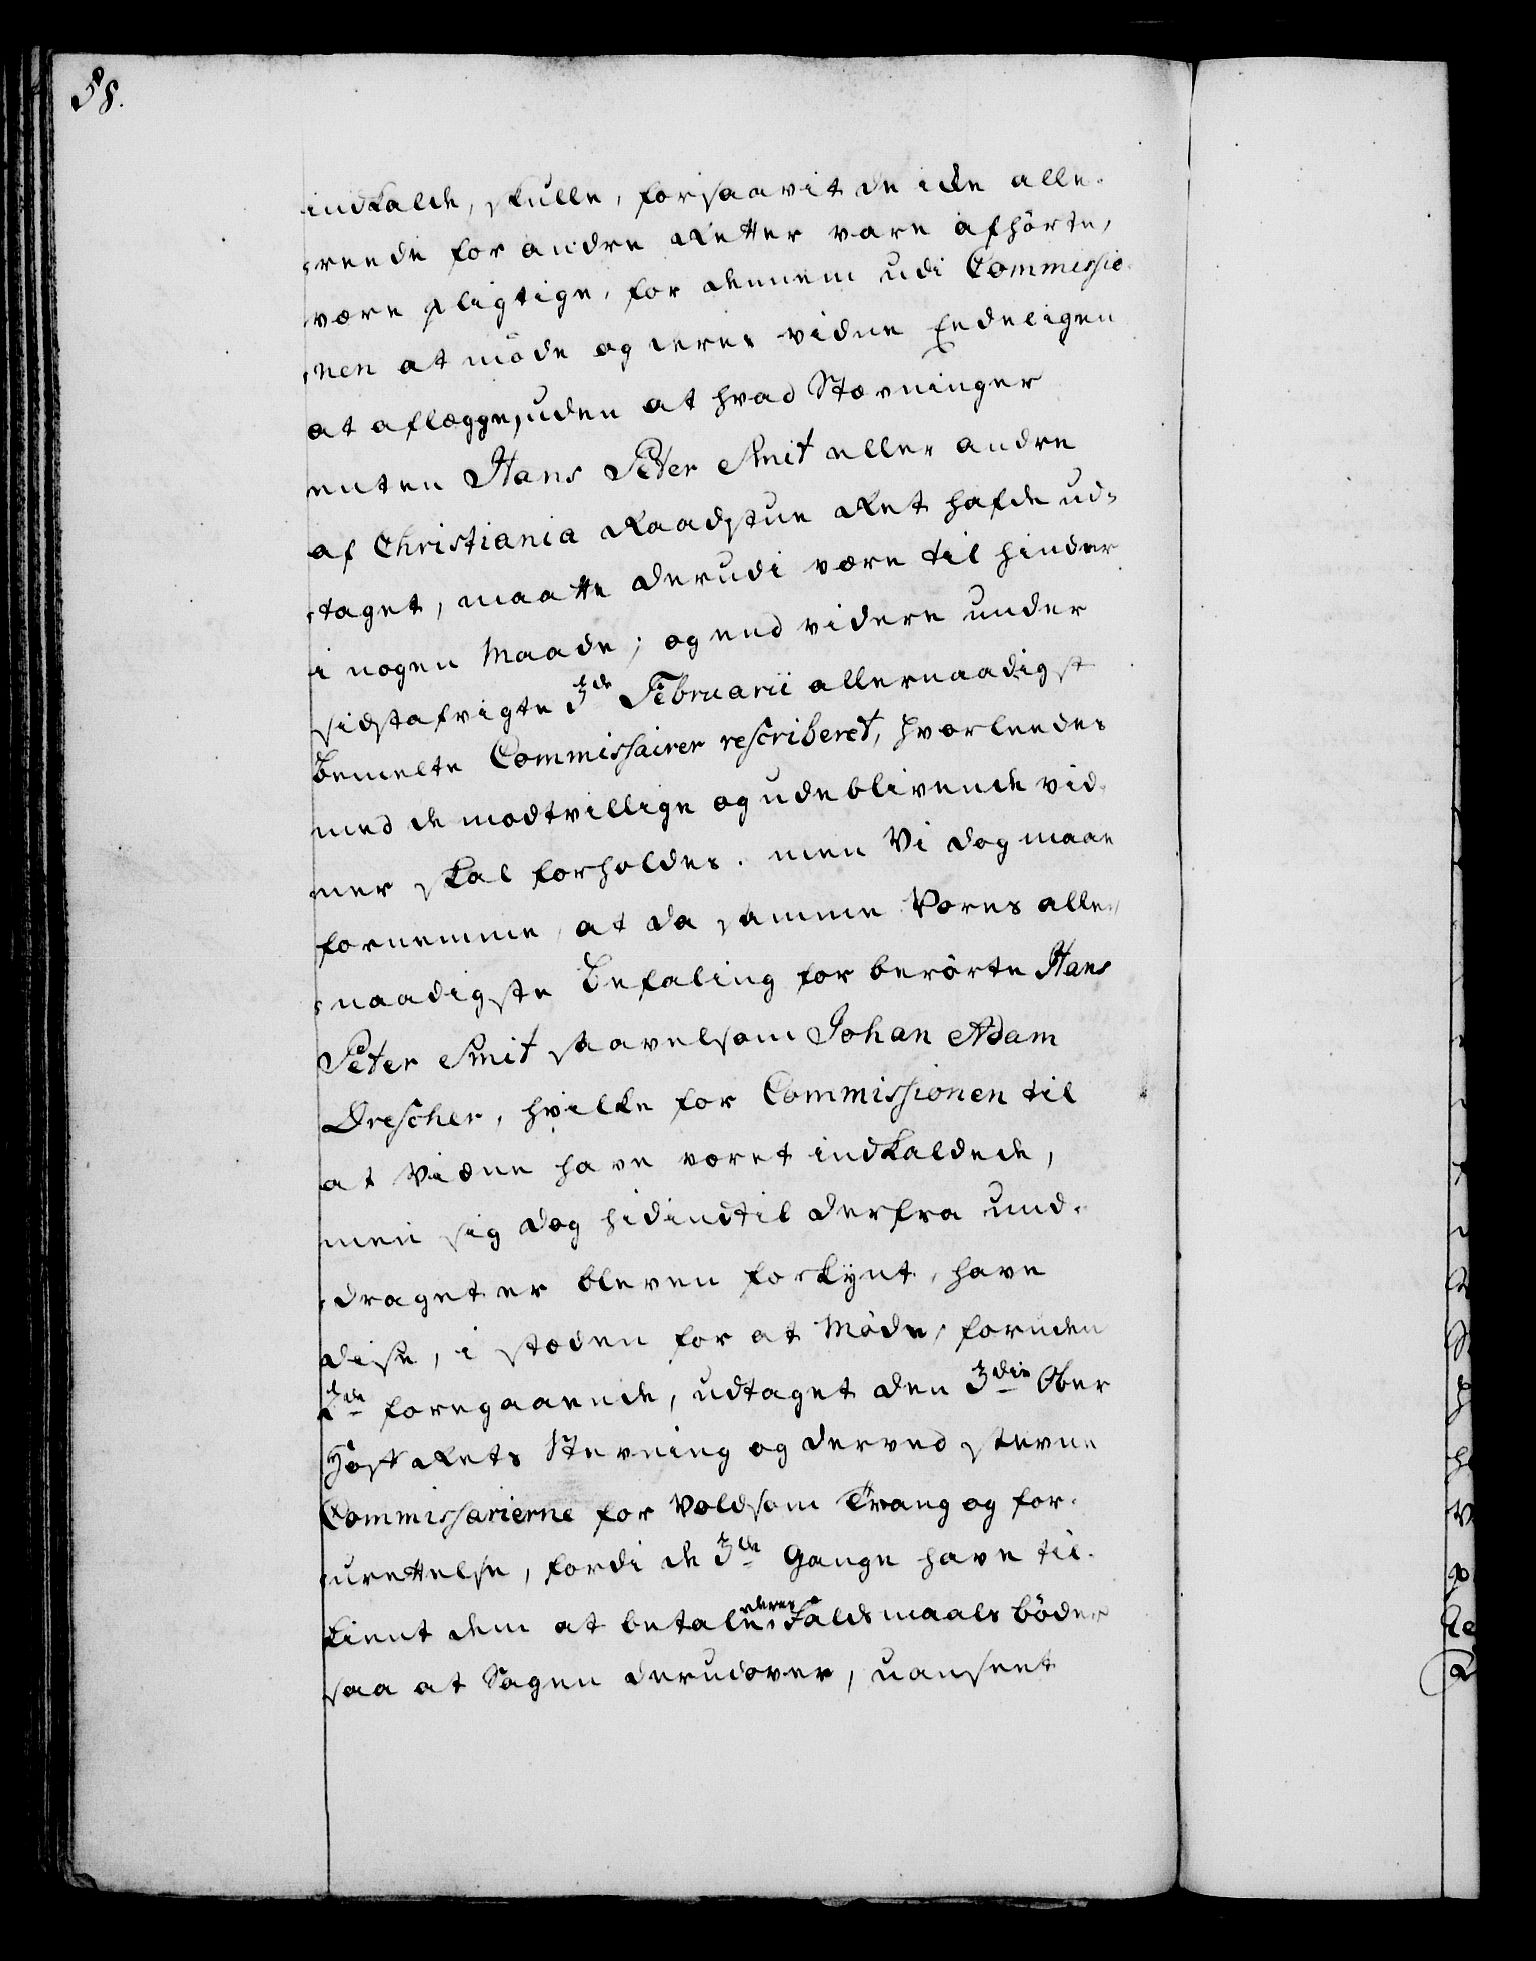 58.
indkalde, skulle, forsaavit de icke alle-
-reede for andre Retter vare afhörte,
være pligtige, for dennem udi Commissio-
-nen at möde og deres vidne Endeligen
at aflægge, uden at hvad Stævninger
enten Hans Peter Smit eller andre
af Christiania Raadstue Ret hafde ud-
-taget, maatte derudi være til hinder
i nogen Maade; og end videre under
sidstafvigte 3de Februarii allernaadigst
bemelte Commissairer rescriberet, hvorleedes
med de modtvillige og udeblivende vid-
ner skal forholdes. men Vi dog maae
fornemme, at da samme Vores aller-
-naadigste Befaling for berörte Hans
Peter Smit saavelsom Johan Adam
Drescher, hvilke for Commissionen til
at Vidne have været indkaldede,
men sig dog hidindtil derfra und-
-draget er bleven forkynt, have
dise, i stæden for at Möde, foruden
2de foregaaende, udtaget den 3die Ober
Hoff Rets Stevning og derved stevne
Commissarierne for Voldsom Trang og for-
-urettelse, fordi de 3de Gange have til-
kient dem at betale deres Faldsmaals böder
saa at Sagen derudover, uanseet